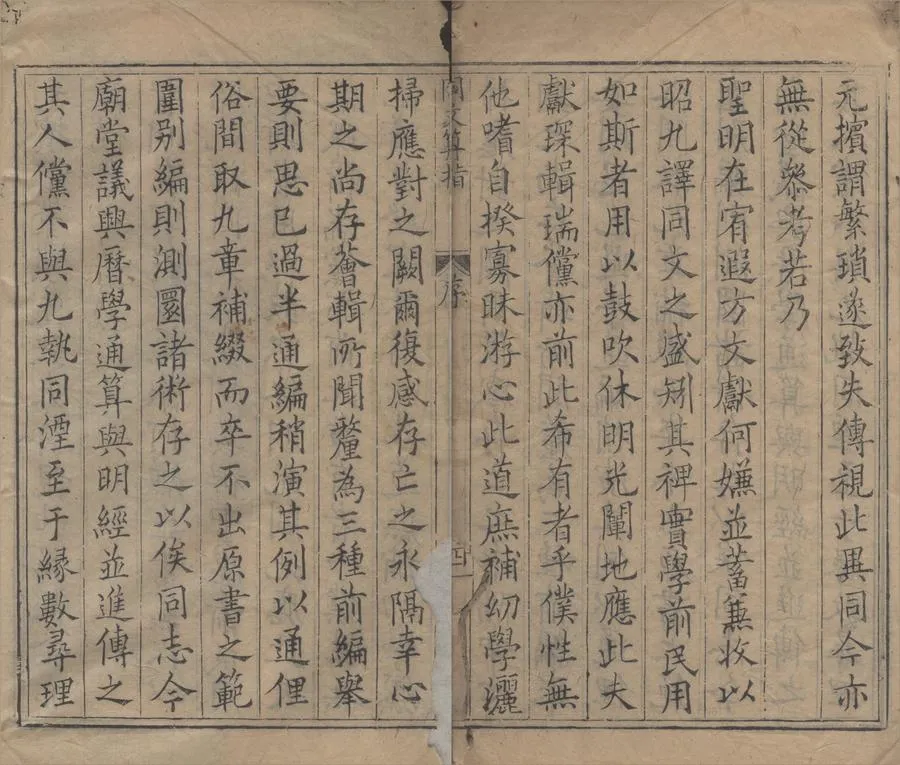 元擯謂繁瑣遂致失傳視此異同今亦
無從叅考若乃
聖明在宥遐方文獻何嫌並蓄兼收以
昭九譯同文之盛矧其裨實學前民用
如斯者用以鼓吹休明光闡地應此夫
獻琛輯瑞儻亦前此希有者乎僕性無
他嗜自揆寡昧游心此道庶補幼學灑
同文算指
序
四
掃應對之闕爾復感存亡之永隔幸心
期之尚存薈輯所聞釐為三種前編舉
要則思已過半通編稍演其例以通俚
俗間取九章補綴而卒不出原書之範
圍別編則測圜諸術存之以俟同志今
廟堂議興曆學通算與明經並進傳之
其人儻不與九執同湮至于緣數尋理